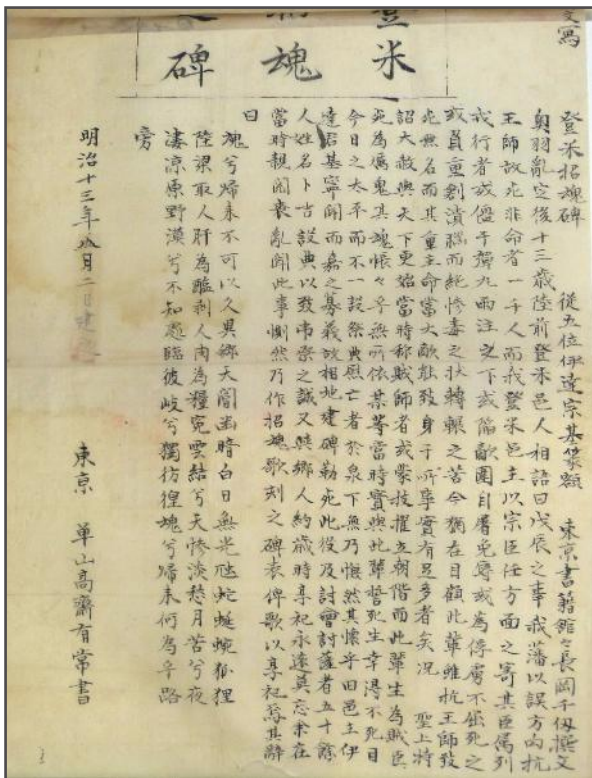 文写
米魂碑
登米招魂碑　從五位伊達宗基篆額　東京書籍館々長岡千仭撰文
奥羽亂定後十三歳陸前登米邑人相語曰戊辰之事我藩以誤方向抗
王師故死非命者一千人而我登米邑主以宗臣任方面之寄其臣属列
戎行者或僵于彈丸雨注之下或陥敵圍自屠免辱或為俘虜不屈死之
或負重創潰腦而絶惨毒之状轉輾之苦今猶在目顧此輩雖抗王師致
死無名而其重主命當大敵能致身于所事實有足多者矣况　聖上特
詔大赦與天下更始當時称賊師者或蒙抜擢立朝偕而此輩生為賊臣
死為厲鬼其魂悵々乎無所依某等當時實與此輩誓死生幸得不死目
今日之太平而不一設祭典慰亡者於泉下無乃慨然其懐乎旧邑主伊
達君基寧聞而嘉之募義故相地建碑勒死此役及討會討薩者五十餘
人姓名卜吉設典以致弔祭之誠又與郷人約歳時享祀永遠莫忘余在
當時親閲喪亂聞此事惻然乃作招魂歌刻之碑表俾歌以享祀焉其辭
曰
魂兮歸来不可以久異郷天闇幽暗白日無光虺蛇蜒蜿狐狸
陸梁取人肝為醢剥人肉為糧寃雲結兮天惨淡愁月苦兮夜
凄凉原野漠兮不知處臨彼岐兮獨彷徨魂兮歸来何為乎路
旁
明治十三年 月二日建之
東京　單山高齋有常書